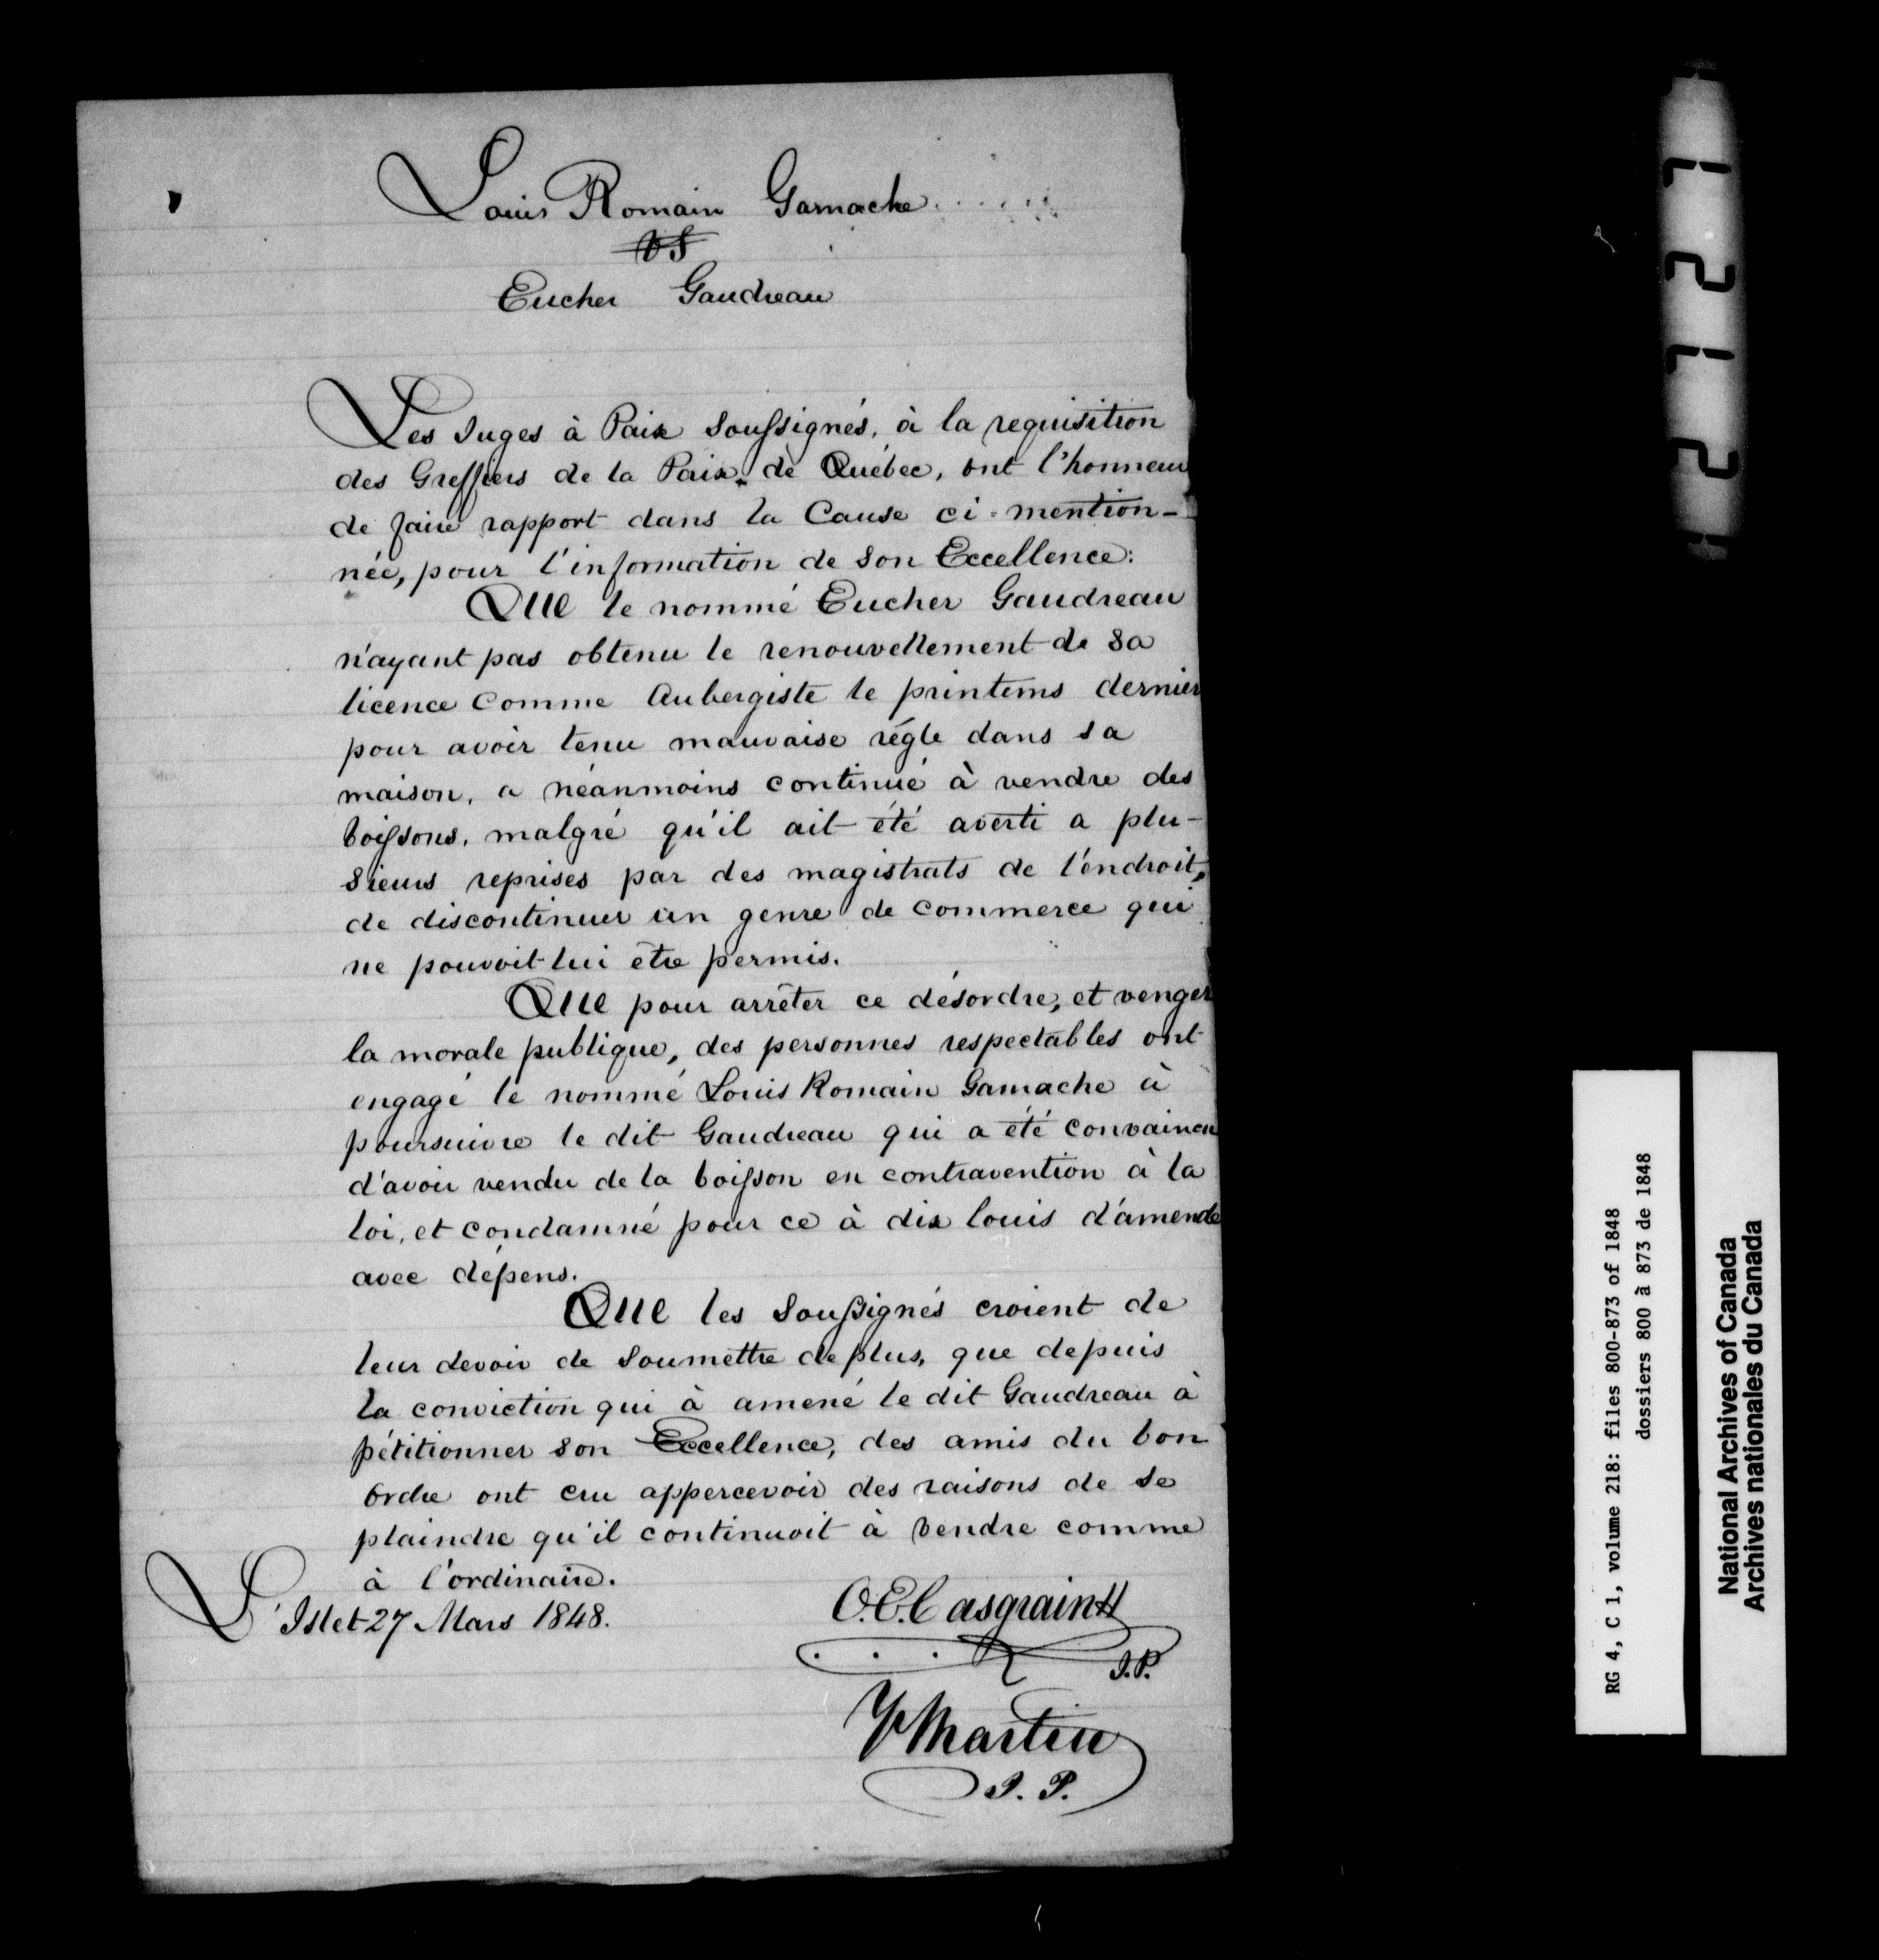 Louis Romain Gamache
vs
Eucher Gaudreau
Les Juges à Paix soussignés, à la requisition
des Greffiers de la Paix de Québec, ont l'honneur
de faire rapport dans la Cause ci-mention-
née, pour l'information de Son Eccellence:
Que le nommé Eucher Gaudreau
n'ayant pas obtenu le renouvellement de sa
licence comme Aubergiste le printems dernier
pour avoir tenu mauvaise régle dans sa
maison, a néanmoins continué à vendre des
boissons, malgré qu'il ait été averti a plu-
sieurs reprises par des magistrats de l'endroit,
de discontinuer un genre de commerce qui
ne pouvoit lui être permis.
Que pour arrêter ce désordre, et venger
la morale publique, des personnes respectables ont
engagé le nommé Louis Romain Gamache à
poursuivre le dit Gaudreau qui a été convaincu
d'avoir vendu de la boisson en contravention à la
loi, et condamné pour ce à dix louis d'amende
avec dépens.
Que les Soussignés croient de
leur devoir de soumettre de plus, que depuis
la conviction qui à amené le dit Gaudreau à
pétitionner son Eccellence, des amis du bon
ordre ont cru appercevoir des raisons de se
plaindre qu'il continuoit à vendre comme
à l'ordinaire.
L'Islet 27 Mars 1848.
O. E. Casgrain
J.P.
Martin
J. P.
1 2 1 2
RG 4, C 1, volume 218: files 800-873 of 1848
dossiers 800 à 873 de 1848
National Archives of Canada
Archives nationales du Canada